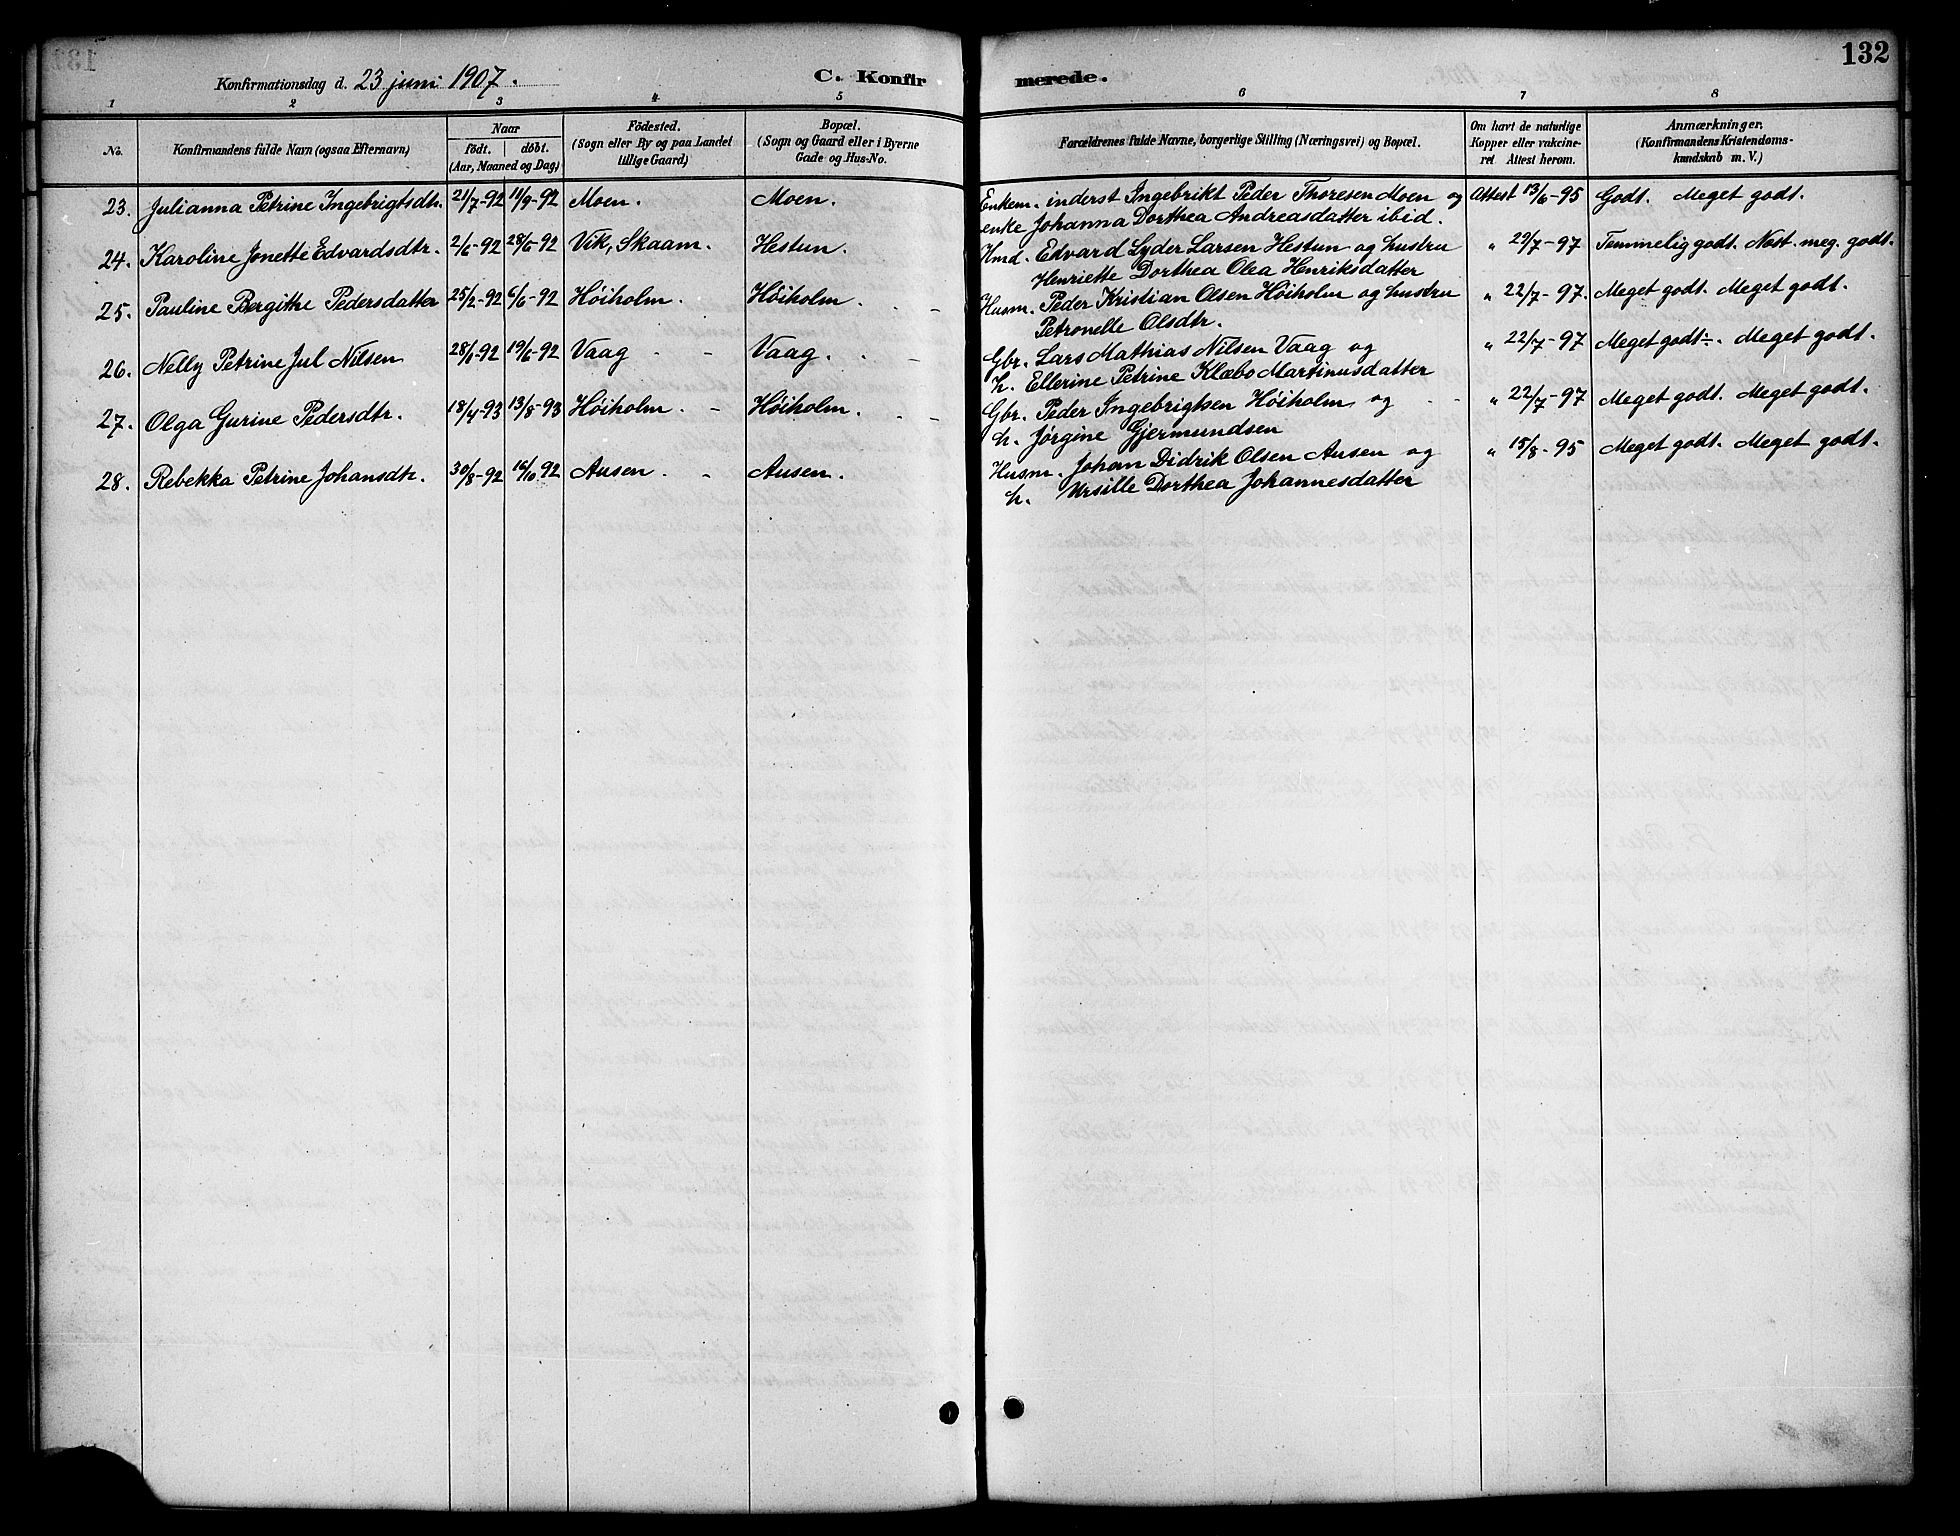 132
Konfirmationsdag d. 23 juni 1907. C. Konfirmerede.
1 2 3 4 5 6 7 8
No. Konfirmandens fulde Navn (ogsaa Efternavn) Naar födt. döbt. (Aar, Maaned og Dag) Födested. (Sogn eller By og paa Landet tillige Gaard) Bopæl. (Sogn og Gaard eller i Byerne Gade og Hus-No. Forældrenes fulde Navne, borgerlige Stilling (Næringsvei) og Bopæl. Om havt de naturlige Kopper eller vakcineret. Attest herom. Anmærkninger. (Konfirmandens Kristendomskundskab m. V.)
23. Julianna Petrine Ingebrigtsdtr. 21/7-92 11/9-92 Moen. Moen. Enkem. inderst Ingebrikt Peder Thoresen Moen og Attest 13/6-95 Godt. Meget godt.
enke Johanna Dorthea Andreasdatter ibid.
24. Karoline Jonette Edvardsdtr. 2/6-92 28/6-92 Vik, Skaam. Hestun. Hmd. Edvard Lyder Larsen Hestun og hustru " 29/7-97 Temmelig godt. Næst. meg. godt.
Henriette Dorthea Olea Henriksdatter
25. Pauline Bergithe Pedersdatter 25/2-92 6/6-92 Höiholm. Höiholm. Husm. Peder Kristian Olsen Höiholm og hustru " 22/7-97. Meget godt. Meget godt.
Petronelle Olsdtr.
26. Nelly Petrine Jul Nilsen 28/1-92 19/6-92 Vaag Vaag. Gbr. Lars Mathias Nilsen Vaag og " 22/7-97 Meget godt÷. Meget godt.
h. Ellerine Petrine Klæbo Martinusdatter
27. Olga Gurine Pedersdtr. 18/4-93 13/8-93 Höiholm. Höiholm. Gbr. Peder Ingebrigtsen Höiholm og " 22/7-97 Meget godt. Meget godt.
h. Jørgine Gjermundsen
28. Rebekka Petrine Johansdtr. 30/8-92 16/10 92 Ausen. Ausen. Husm. Johan Didrik Olsen Ausen og " 15/8-95 Meget godt. Meget godt.
h. Ursille Dorthea Johannesdatter